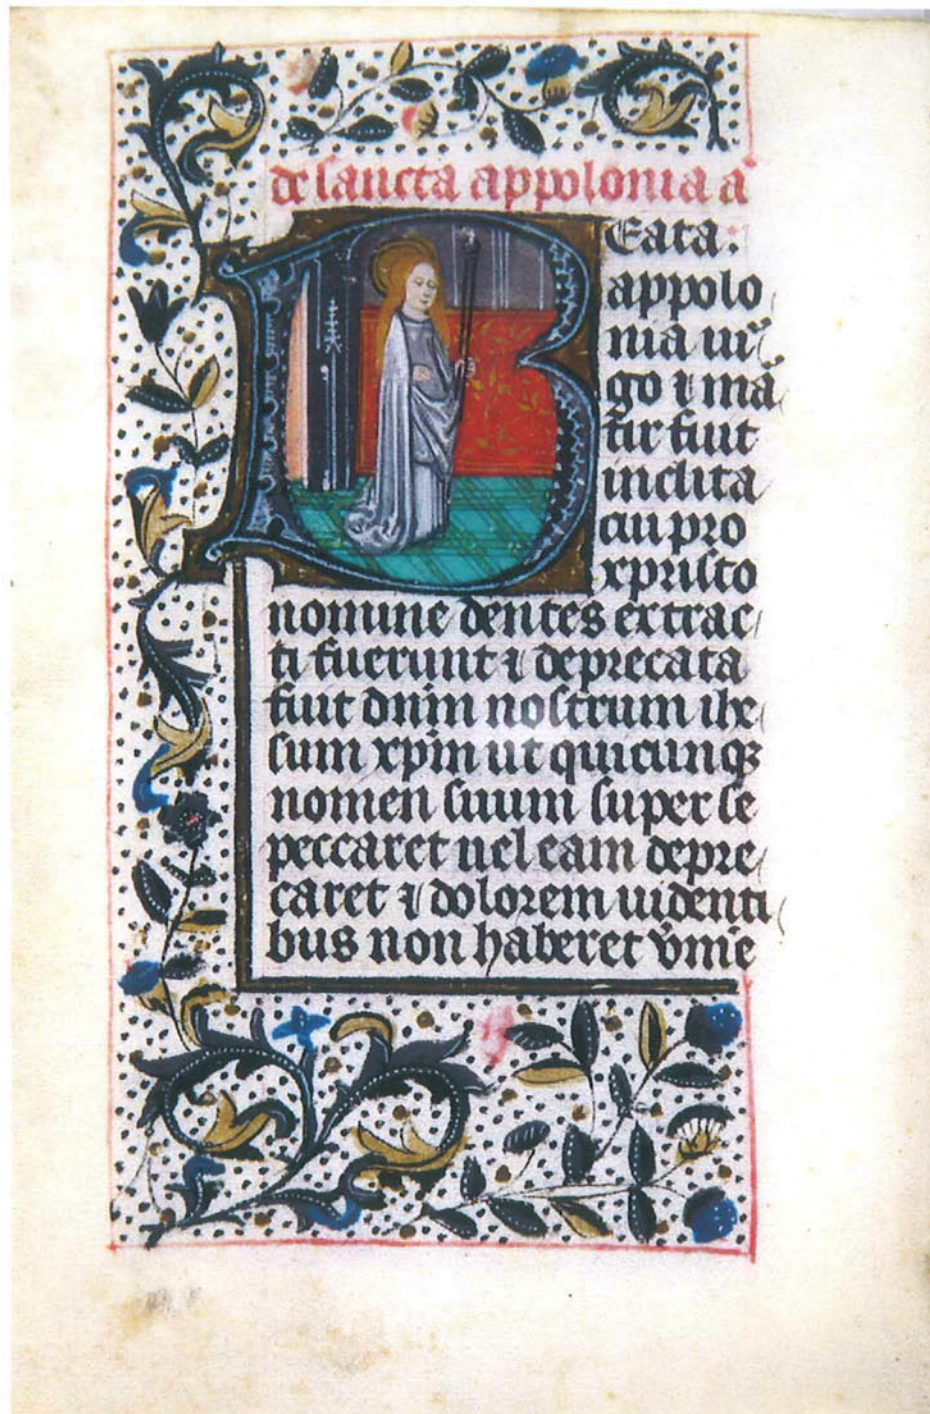 de sancta appolonia añ
Beata.
appolo
nia vir
go ⁊ mar
tir fuit
inclita
cui pro
xpristo
nomine dentes extrac
ti fuerunt ⁊ deprecata
fuit dnm̄ nostrum ihe
sum xpm̄ ut quicunqꝫ
nomen suum super se
peccaret uel eam depre
caret ⁊ dolorem in denti
bus non haberet